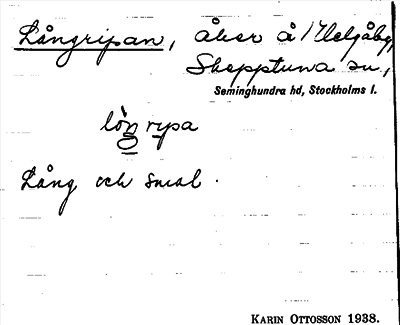 Långripan, åker å Helgåby,
Skepptuna sn,
Seminghundra hd, Stockholms l.
lån̥ ripa
Lång och smal.
KARIN OTTOSSON 1938.